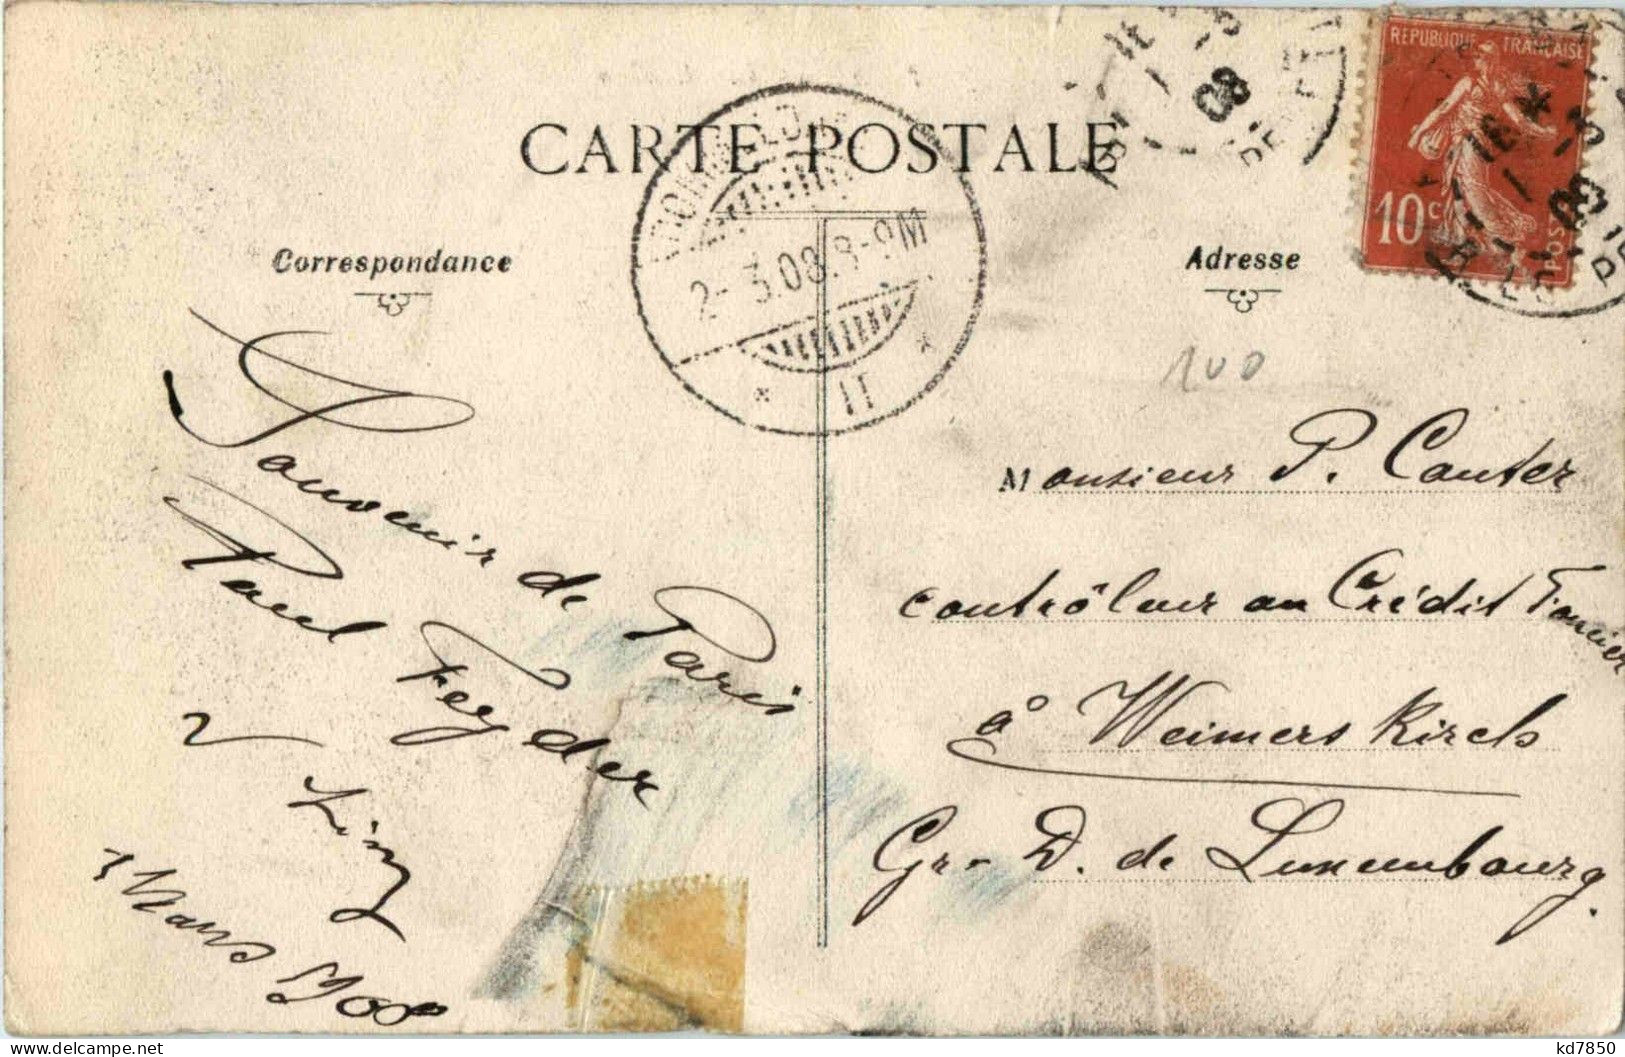 CARTE POSTALE
Correspondance
Adresse
REPUBLIQUE FRANÇAISE
10 c
POSTES
08
2-3.08.8-9M
II
100
Souvenir de Paris
Paul Feyder
1 Mars 1908
Monsieur P. Cauter
contrôleur au Crédit Foncier
à Weimerskirch
Gr-D. de Luxembourg.
kd7850